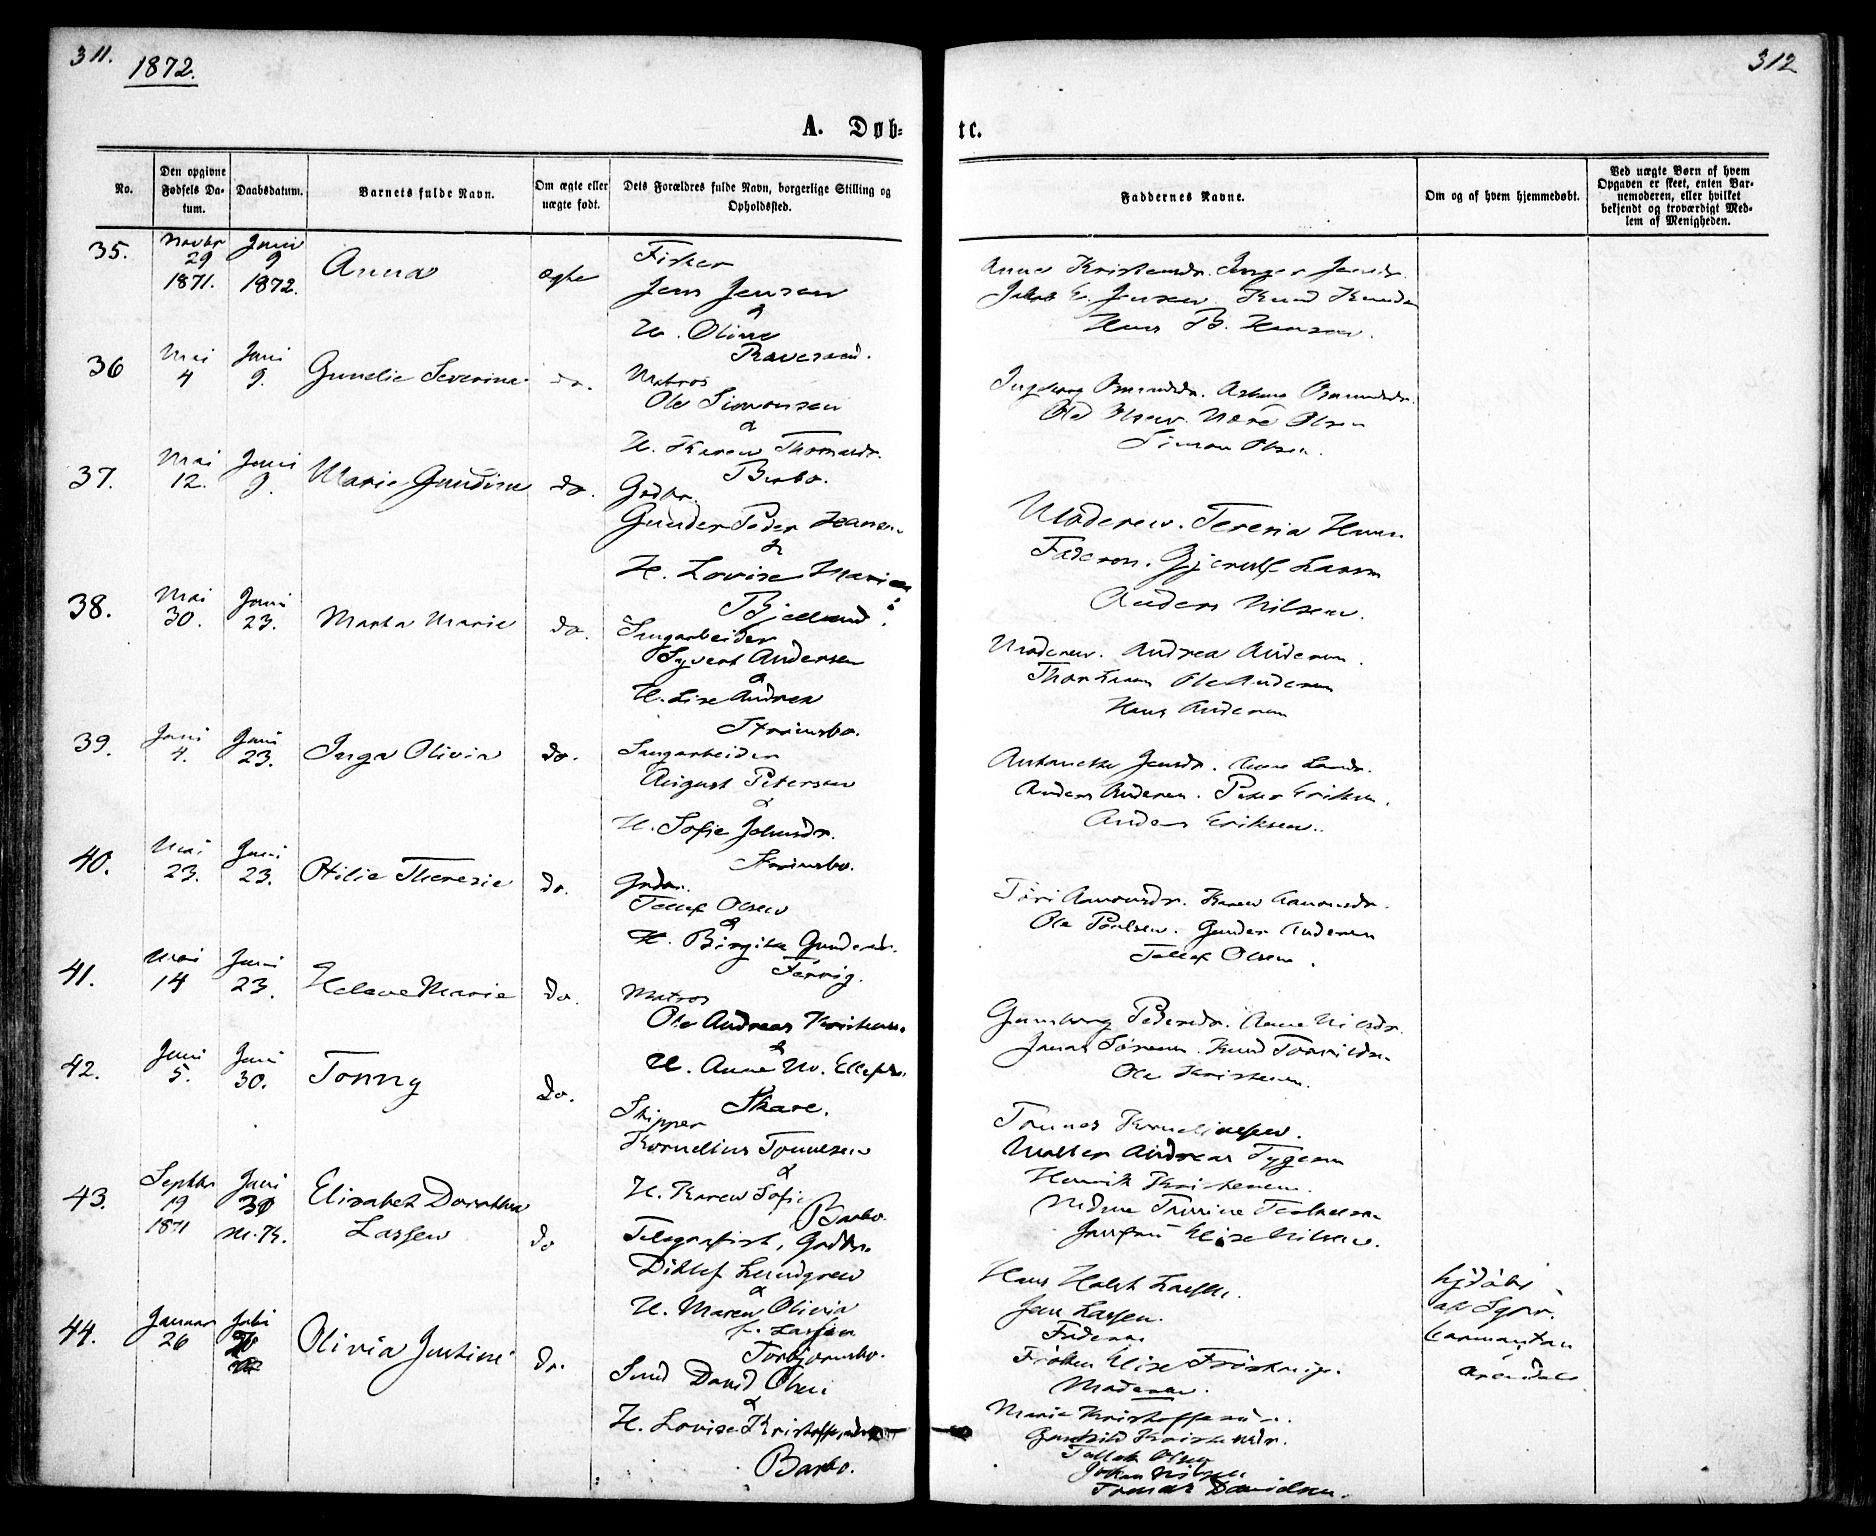 311.
1872.
312
A. Døb-
te.
No.
Den opgivne Fødsels Da-tum.
Daabsdatum.
Barnets fulde Navn.
Om ægte eller uægte født.
Dets Forældres fulde Navn, borgerlige Stilling og Opholdssted.
Faddernes Navne.
Om og af hvem hjemmedøbt.
Ved uægte Børn af hvem Opgaven er skeet, enten Bar-nemoderen, eller hvilket bekjendt og troværdigt Med-lem af Menigheden.
35.
Novbr 29 1871.
Juni 9 1872.
Anna
ægte
Fisker
Jens Jensen
&
H. Oline
Anne Kristensdr. Inger Jensdr.
Jakob E. Jensen. Knud Knudsen
Hans B. Hansen.
36
Mai 4
Juni 9.
Gunelie Severine
do.
Matros
Ole Simonsen
&
H. Karen Thomasdr.
Barbo.
Ingeborg Osmundsdr. Osmundsdr.
Ole Olsen. Olsen
Simon Olsen.
37.
Mai 12.
Juni 9.
Marie Gundine
do.
Gdbr.
Gunder Peder Hansen
&
H. Lovise Marie
Bjelland.
Moderen. Teresia Hansen
Faderen. Gjerulf Larsen
Anders Nilsen.
38.
Mai 30.
Juni 23.
Marta Marie
do.
Saugarbeider
Syvert Andersen
&
H. Lise Andrea
Strømsbo.
Moderen. Andrea Andersen.
Ole Andersen
Hans Andersen
39.
Juni 4.
Juni 23.
Inga Olivia
do.
Saugarbeider
August Petersen
&
H. Sofie Johnsdr.
Strømsbo.
Antonette Jensdr. Anne Larsdr.
Anders Andersen. Peter Eriksen.
Anders Eriksen.
40.
Mai 23.
Juni 23.
Otilie Theresie
do.
Gdbr.
Tellef Olsen
&
H. Birgitte Gundersdr.
Tøri Aanonsdr. Karen Aanonsdr.
Ole Poulsen. Gunder Andersen
Tellef Olsen.
41.
Mai 14
Juni 23.
Helene Marie
do.
Matros
Ole Andreas Kristensen
&
H. Anne M. Ellefsdr.
Skare.
Gunborg Pedersdr. Anne Nilsdr.
Jonas Sørensen. Knud
Ole Kristensen.
42.
Juni 5.
Juni 30.
Tonny
do.
Skipper
Kornelius Tønnesen
&
H. Karen Sofie
Barbo.
Tønnes Korneliussen.
Andreas
Henrik Kristensen.
Elise Nilsen.
43.
Septbr 19 1871
Juni 30 M.K.
Elisabet Dorothea
Lassen
do
Telegrafist, Gdbr.
Ditlef Lundgren
&
H. Maren Olivia
f. Lassen
Torbjørnsbo.
Hans Holst Lassen.
Jens Lassen.
Faderen
Frøken Elise
Moderen.
hjdøbt
af Sgpr.
Arendal
44.
Januar 26
Juli
Olivia Justine
do.
Smd David Olsen
&
H. Lovise Kristoffersdr.
Barbo.
Marie Kristoffersdr.
Gunhild Kristensdr.
Tellef Olsen
Johan Nilsen
Davidsen.